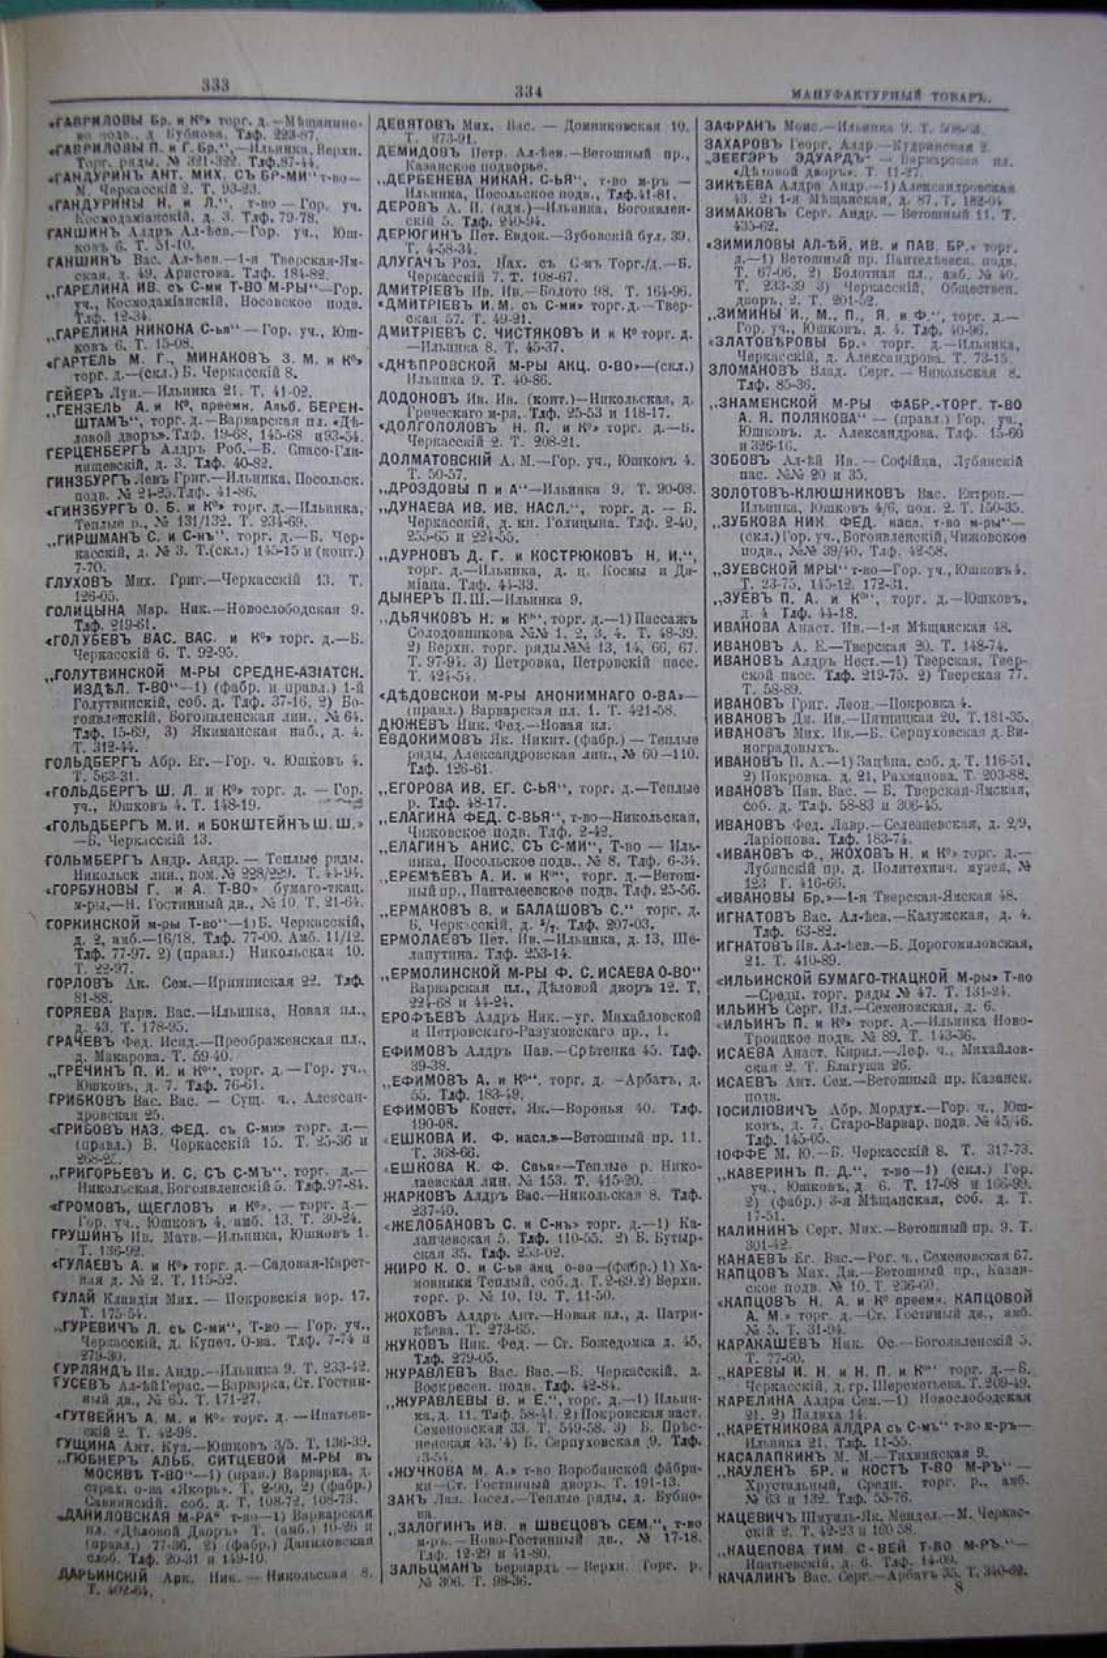 333
334
МАНУФАКТУРНЫЙ ТОВАРЪ.
«ГАВРИЛОВЫ Бр. и К°» торг. д.—Мѣщанино-
во подв., д. Бубнова. Тлф. 223-87.
«ГАВРИЛОВЫ П. и Г. Бр.", —Ильинка, Верхн.
Торг. ряды, № 321-322. Тлф. 87-44.
«ГАНДУРИНЪ АНТ. МИХ. СЪ БР-МИ" т-во—
М. Черкасскій 2. Т. 93-23.
«ГАНДУРИНЫ Н. и Л.", т-во — Гор. уч.
Космодаміанскій, д. 3. Тлф. 79-78.
ГАНШИНЪ Алдръ Ал-ѣев.—Гор. уч., Юш-
ковъ 6. Т. 51-10.
ГАНШИНЪ Вас. Ал-ѣев.—1-я Тверская-Ям-
ская, д. 49, Аристова. Тлф. 184-82.
„ГАРЕЛИНА ИВ. съ С-ми Т-ВО М-РЫ"—Гор.
уч., Космодаміанскій, Носовское подв.
Тлф. 12-34.
„ГАРЕЛИНА НИКОНА С-ья" — Гор. уч., Юш-
ковъ 6. Т. 15-08.
«ГАРТЕЛЬ М. Г., МИНАКОВЪ З. М. и К°»
торг. д.—(скл.) Б. Черкасскій 8.
ГЕЙЕРЪ Луи.—Ильинка 21. Т. 41-02.
„ГЕНЗЕЛЬ А. и К°, преемн. Альб. БЕРЕН-
ШТАМЪ", торг. д.—Варварская пл. «Дѣ-
ловой дворъ». Тлф. 19-68, 145-68 и 93-54.
ГЕРЦЕНБЕРГЪ Алдръ Роб.—Б. Спасо-Гли-
нищевскій, д. 3. Тлф. 40-82.
ГИНЗБУРГЪ Левъ Григ.—Ильинка, Посольск.
подв. № 24-25. Тлф. 41-86.
«ГИНЗБУРГЪ О. Б. и К°» торг. д.—Ильинка,
Теплые р., № 131/132. Т. 234-69.
„ГИРШМАНЪ С. и С-нъ", торг. д.—Б. Чер-
касскій, д. № 3. Т. (скл.) 145-15 и (конт.)
7-70.
ГЛУХОВЪ Мих. Григ.—Черкасскій 13. Т.
126-05.
ГОЛИЦЫНА Мар. Ник.—Новослободская 9.
Тлф. 219-61.
«ГОЛУБЕВЪ ВАС. ВАС. и К°» торг. д.—Б.
Черкасскій 6. Т. 92-95.
„ГОЛУТВИНСКОЙ М-РЫ СРЕДНЕ-АЗІАТСК.
ИЗДѢЛ. Т-ВО"—1) (фабр. и правл.) 1-й
Голутвинскій, соб. д. Тлф. 37-16, 2) Бо-
гоявленскій, Богоявленская лин., № 64.
Тлф. 15-69, 3) Якиманская наб., д. 4.
Т. 312-44.
ГОЛЬДБЕРГЪ Абр. Ег.—Гор. ч. Юшковъ 4.
Т. 563-31.
«ГОЛЬДБЕРГЪ Ш. Л. и К°» торг. д. — Гор.
уч., Юшковъ 4. Т. 148-19.
«ГОЛЬДБЕРГЪ М. И. и БОКШТЕЙНЪ Ш. Ш.»
—Б. Черкасскій 13.
ГОЛЬМБЕРГЪ Андр. Андр. — Теплые ряды,
Никольск лин., пом. № 228/229. Т. 44-94.
«ГОРБУНОВЫ Г. и А. Т-ВО» бумаго-ткац.
м-ры,—Н. Гостинный дв., № 10. Т. 21-64.
ГОРКИНСКОЙ м-ры Т-во"—1) Б. Черкасскій,
д. 2, амб.—16/18. Тлф. 77-00. Амб. 11/12.
Тлф. 77-97. 2) (правл.) Никольская 10.
Т. 22-97.
ГОРЛОВЪ Ак. Сем.—Ирининская 22. Тлф.
81-88.
ГОРЯЕВА Варв. Вас.—Ильинка, Новая пл.,
д. 43. Т. 178-95.
ГРАЧЕВЪ Фед. Исид.—Преображенская пл.,
д. Макарова. Т. 59-40.
„ГРЕЧИНЪ П. И. и К°", торг. д. — Гор. уч.,
Юшковъ, д. 7. Тлф. 76-61.
ГРИБКОВЪ Вас. Вас. — Сущ. ч., Алексан-
дровская 25.
«ГРИБОВЪ НАЗ. ФЕД. съ С-ми» торг. д.—
(правл.) Б. Черкасскій 15. Т. 25-36 и
„ГРИГОРЬЕВЪ И. С. СЪ С-МЪ", торг. д.—
Никольская, Богоявленскій 5. Тлф. 97-84.
«ГРОМОВЪ, ЩЕГЛОВЪ и К°», — торг. д.—
Гор. уч., Юшковъ 4, амб. 13. Т. 30-24.
ГРУШИНЪ Ив. Матв.—Ильинка, Юшковъ 1.
Т. 136-92.
«ГУЛАЕВЪ А. и К°» торг. д.—Садовая-Карет-
ная д. № 2. Т. 115-52.
ГУЛАЙ Клавдія Мих. — Покровскія вор. 17.
Т. 175-54.
„ГУРЕВИЧЪ Л. съ С-ми", Т-во — Гор. уч.,
Черкасскій, д. Купеч. О-ва. Тлф. 7-74 и
279-30.
ГУРЛЯНДЪ Ив. Андр.—Ильинка 9. Т. 233-42.
ГУСЕВЪ Ал-ѣй Герас.—Варварка, Ст. Гостин-
ный дв., № 65. Т. 171-27.
«ГУТВЕЙНЪ А. М. и К°» торг. д. — Ипатьев-
скій 2. Т. 42-98.
ГУЩИНА Ант. Куз.—Юшковъ 3/5. Т. 136-39.
„ГЮБНЕРЪ АЛЬБ. СИТЦЕВОЙ М-РЫ въ
МОСКВѢ Т-ВО"—1) (прав.) Варварка, д.
страх. о-ва «Якорь». Т. 2-90, 2) (фабр.)
Саввинскій, соб. д. Т. 108-72, 108-73.
„ДАНИЛОВСКАЯ М-РА" т-во—1) Варварская
пл. «Дѣловой Дворъ» Т. (амб.) 10-26 и
(правл.) 77-36, 2) (фабр.) Даниловская
слоб. Тлф. 20-31 и 149-10.
ДАРЬИНСКІЙ Арк. Ник. — Никольская 8.
Т. 402-64.
ДЕВЯТОВЪ Мих. Вас. — Домниковская 10.
Т. 273-91.
ДЕМИДОВЪ Петр. Ал-ѣев.—Ветошный пр.,
Казанское подворье.
„ДЕРБЕНЕВА НИКАН. С-ЬЯ", т-во м-ръ —
Ильинка, Посольское подв., Тлф. 41-81.
ДЕРОВЪ А. И. (адм.)—Ильинка, Богоявлен-
скій 5. Тлф. 240-94.
ДЕРЮГИНЪ Пет. Евдок.—Зубовскій бул. 39.
Т. 4-58-34.
ДЛУГАЧЪ Роз. Нах. съ С-мъ Торг./д.—Б.
Черкасскій 7. Т. 108-67.
ДМИТРІЕВЪ Ив. Ив.—Болото 98. Т. 164-96.
«ДМИТРІЕВЪ И. М. съ С-ми» торг. д.—Твер-
ская 57. Т. 49-21.
ДМИТРІЕВЪ С. ЧИСТЯКОВЪ И и К° торг. д.
—Ильинка 8. Т. 45-37.
«ДНѢПРОВСКОЙ М-РЫ АКЦ. О-ВО»—(скл.)
Ильинка 9. Т. 40-86.
ДОДОНОВЪ Ив. Ив. (конт.)—Никольская, д.
Греческаго м-ря, Тлф. 25-53 и 118-17.
«ДОЛГОПОЛОВЪ Н. П. и К°» торг. д.—Б.
Черкасскій 2. Т. 208-21.
ДОЛМАТОВСКІЙ А. М.—Гор. уч., Юшковъ 4.
Т. 50-57.
„ДРОЗДОВЫ П и А"—Ильинка 9. Т. 90-08.
„ДУНАЕВА ИВ. ИВ. НАСЛ.", торг. д. — Б.
Черкасскій, д. кн. Голицына. Тлф. 2-40,
255-65 и 224-55.
„ДУРНОВЪ Д. Г. и КОСТРЮКОВЪ Н. И.",
торг. д.—Ильинка, д. ц. Космы и Да-
міана. Тлф. 44-33.
ДЫНЕРЪ П. Ш.—Ильинка 9.
„ДЬЯЧКОВЪ Н: и К°", торг. д.—1) Пассажъ
Солодовникова №№ 1, 2, 3, 4. Т. 48-39.
2) Верхн. торг. ряды №№ 13, 14, 66, 67.
Т. 97-94. 3) Петровка, Петровскій пасс.
Т. 424-54.
«ДѢДОВСКОЙ М-РЫ АНОНИМНАГО О-ВА»—
(правл.) Варварская пл. 1. Т. 421-58.
ДЮЖЕВЪ Ник. Фед.—Новая пл.
ЕВДОКИМОВЪ Як. Никит. (фабр.) — Теплые
ряды, Александровская лин., № 60—110.
Тлф. 126-61.
„ЕГОРОВА ИВ. ЕГ. С-ЬЯ", торг. д.—Теплые
р. Тлф. 48-17.
„ЕЛАГИНА ФЕД. С-ВЬЯ", т-во—Никольская,
Чижовское подв. Тлф. 2-42.
„ЕЛАГИНЪ АНИС. СЪ С-МИ", Т-во — Иль-
инка, Посольское подв., № 8. Тлф. 6-34.
„ЕРЕМѢЕВЪ А. И. и К°", торг. д.—Ветош-
ный пр., Пантелеевское подв. Тлф. 25-56.
„ЕРМАКОВЪ В. и БАЛАШОВЪ С." торг. д.
Б. Черкасскій, д. 5/7. Тлф. 207-03.
ЕРМОЛАЕВЪ Пет. Ив.—Ильинка, д. 13, Ше-
лапутина. Тлф. 253-14.
„ЕРМОЛИНСКОЙ М-РЫ Ф. С. ИСАЕВА О-ВО"
Варварская пл., Дѣловой дворъ 12. Т.
224-68 и 44-24.
ЕРОФѢЕВЪ Алдръ Ник.—уг. Михайловской
и Петровскаго-Разумовскаго пр., 1.
ЕФИМОВЪ Алдръ Пав.—Срѣтенка 45. Тлф.
39-38.
„ЕФИМОВЪ А. и К°", торг. д. —Арбатъ, д.
55. Тлф. 183-49.
ЕФИМОВЪ Конст. Як.—Воронья 40. Тлф.
190-08.
«ЕШКОВА И. Ф. насл.»—Ветошный пр. 11.
Т. 368-66.
«ЕШКОВА К. Ф. Свья»—Теплые р. Нико-
лаевская лин. № 153. Т. 415-20.
ЖАРКОВЪ Алдръ Вас.—Никольская 8. Тлф.
237-40.
«ЖЕЛОБАНОВЪ С. и С-нъ» торг. д.—1) Ка-
ланчевская 5. Тлф. 110-55. 2) Б. Бутыр-
ская 35. Тлф. 253-02.
ЖИРО К. О. и С-ья акц о-во—(фабр.) 1) Ха-
мовники Теплый, соб. д. Т. 2-69. 2) Верхн.
торг. р. № 10, 19. Т. 11-50.
ЖОХОВЪ Алдръ Ант.—Новая пл., д. Патри-
кѣева. Т. 273-65.
ЖУКОВЪ Ник. Фед. — Ст. Божедомка д. 45,
Тлф. 279-05.
ЖУРАВЛЕВЪ Вас. Вас.—Б. Черкасскій, д.
Воскресен. подв. Тлф. 42-84.
„ЖУРАВЛЕВЫ В. и Е.", торг. д.—1) Ильин-
ка, д. 11. Тлф. 58-41. 2) Покровская заст.
Семеновская 33. Т. 549-58. 3) Б. Прѣс-
ненская 43. 4) Б. Серпуховская 9. Тлф.
«ЖУЧКОВА М. А.» т-во Воробинской фабри-
ки—Ст. Гостинный дворъ. Т. 191-13.
ЗАКЪ Лаз. Іосел.—Теплые ряды, д. Бубно-
ва.
„ЗАЛОГИНЪ ИВ. и ШВЕЦОВЪ СЕМ.", т-во
м-ръ.—Ново-Гостинный дв., № 17-18.
Тлф. 12-29 и 41-80.
ЗАЛЬЦМАНЪ Бернардъ — Верхн. Торг. р.
№ 306. Т. 98-36.
ЗАФРАНЪ Моис.—Ильинка 9. Т.
ЗАХАРОВЪ Георг. Алдр.—Кудринская 2.
„ЗЕЕГЭРЪ ЭДУАРДЪ" — Варварская пл.
«Дѣловой дворъ». Т. 11-27.
ЗИКѢЕВА Алдра Андр.—1) Александровская
43. 2) 1-я Мѣщанская, д. 87. Т. 182-04
ЗИМАКОВЪ Серг. Андр. — Ветошный 11. Т.
435-62.
«ЗИМИЛОВЫ АЛ-ѢЙ, ИВ. и ПАВ. БР.» торг.
д.—1) Ветошный пр. Пантелѣевск. подв.
Т. 67-06, 2) Болотная пл., амб. № 40.
Т. 233-39 3) Черкасскій, Обществен.
дворъ, 2. Т. 201-52.
„ЗИМИНЫ И., М., П., Я. и Ф.", торг. д.—
Гор. уч., Юшковъ, д. 4. Тлф. 40-96.
«ЗЛАТОВѢРОВЫ Бр.» торг. д.—Ильинка,
Черкасскій, д. Александрова. Т. 73-15.
ЗЛОМАНОВЪ Влад. Серг. — Никольская 8.
Тлф. 85-36.
„ЗНАМЕНСКОЙ М-РЫ ФАБР.-ТОРГ. Т-ВО
А. Я. ПОЛЯКОВА" — (правл.) Гор. уч.,
Юшковъ, д. Александрова. Тлф. 15-60
и 326-16.
ЗОБОВЪ Ал-ѣй Ив. — Софійка, Лубянскій
пас. №№ 20 и 35.
ЗОЛОТОВЪ-КЛЮШНИКОВЪ Вас. Евтроп.—
Ильинка, Юшковъ 4/6, пом. 2. Т. 150-35.
„ЗУБКОВА НИК. ФЕД. насл. т-во м-ры"—
(скл.) Гор. уч., Богоявленскій, Чижовское
подв., №№ 39/40. Тлф. 42-58.
„ЗУЕВСКОЙ МРЫ" т-во—Гор. уч., Юшковъ 4.
Т. 23-75, 145-12, 172-31.
„ЗУЕВЪ П. А. и К°", торг. д.—Юшковъ,
д. 4 Тлф. 44-18.
ИВАНОВА Анаст. Ив.—1-я Мѣщанская 48.
ИВАНОВЪ А. Е.—Тверская 20. Т. 148-74.
ИВАНОВЪ Алдръ Нест.—1) Тверская, Твер-
ской пасс. Тлф. 219-75. 2) Тверская 77.
Т. 58-89.
ИВАНОВЪ Григ. Леон.—Покровка 4.
ИВАНОВЪ Дм. Ив.—Пятницкая 20. Т. 181-35.
ИВАНОВЪ Мих. Ив.—Б. Серпуховская д. Ви-
ноградовыхъ.
ИВАНОВЪ П. А.—1) Зацѣпа, соб. д. Т. 116-51.
2) Покровка, д. 21, Рахманова. Т. 203-88.
ИВАНОВЪ Пав. Вас. — Б. Тверская-Ямская,
соб. д. Тлф. 58-83 и 306-45.
ИВАНОВЪ Фед. Лавр.—Селезневская, д. 2/9,
Ларіонова. Тлф. 183-74.
«ИВАНОВЪ Ф., ЖОХОВЪ Н. и К°» торг. д.—
Лубянскій пр. д. Политехнич. музея, №
123 Т. 416-66.
«ИВАНОВЫ Бр.»—1-я Тверская-Ямская 48.
ИГНАТОВЪ Вас. Ал-ѣев.—Калужская, д. 4.
Тлф. 63-82.
ИГНАТОВЪ Ив. Ал-ѣев.—Б. Дорогомиловская,
21. Т. 410-89.
«ИЛЬИНСКОЙ БУМАГО-ТКАЦКОЙ М-ры» Т-во
—Средн. торг. ряды № 47. Т. 131-24.
ИЛЬИНЪ Серг. Ил.—Семеновская, д. 6.
«ИЛЬИНЪ П. и К°» торг. д.—Ильинка Ново-
Троицкое подв. № 89. Т. 143-36.
ИСАЕВА Анаст. Кирил.—Леф. ч., Михайлов-
ская 2. Т. Благуша 26.
ИСАЕВЪ Ант. Сем.—Ветошный пр. Казанск.
подв.
ІОСИЛІОВИЧЪ Абр. Мордух.—Гор. ч., Юш-
ковъ, д. 7. Старо-Варвар. подв. № 45/46.
Тлф. 145-05.
ІОФФЕ М. Ю.—Б. Черкасскій 8. Т. 317-73.
„КАВЕРИНЪ П. Д.", т-во—1) (скл.) Гор.
уч., Юшковъ, д 6. Т. 17-08 и 166-99.
2) (фабр.) 3-я Мѣщанская, соб. д. Т.
17-51.
КАЛИНИНЪ Серг. Мих.—Ветошный пр. 9. Т.
301-42.
КАНАЕВЪ Ег. Вас.—Рог. ч., Семеновская 67.
КАПЦОВЪ Мах. Дм.—Ветошный пр., Казан-
ское подв. № 10. Т. 236-60.
«КАПЦОВЪ Н. А. и К° преем». КАПЦОВОЙ
А. М.» торг. д.—Ст. Гостиный дв., амб.
№ 5. Т. 31-94.
КАРАКАШЕВЪ Ник. Ос.—Богоявленскій 5.
Т. 77-60.
„КАРЕВЫ И. Н. и Н. П. и К°" торг. д.—Б.
Черкасскій, д. гр. Шереметьева. Т. 209-49.
КАРЕЛИНА Алдра Сем.—1) Новослободская
21. 2) Палиха 14.
„КАРЕТНИКОВА АЛДРА съ С-мъ" т-во м-ръ—
Ильинка 21. Тлф. 11-55.
КАСАЛАПКИНЪ М. М.—Тихвинская 9.
„КАУЛЕНЪ БР. и КОСТЪ Т-ВО М-РЪ" —
Хрустальный, Средн. торг. р., амб.
№ 63 и 132. Тлф. 55-76.
КАЦЕВИЧЪ Шмуиль-Як. Мендел.—М. Черкас-
скій 2. Т. 42-23 и 160 58.
„КАЦЕПОВА ТИМ С-ВЕЙ Т-ВО М-РЪ."—
Ипатьевскій, д. 6. Тлф. 14-09.
КАЧАЛИНЪ Вас. Серг.—Арбатъ 35. Т. 340-62.
8